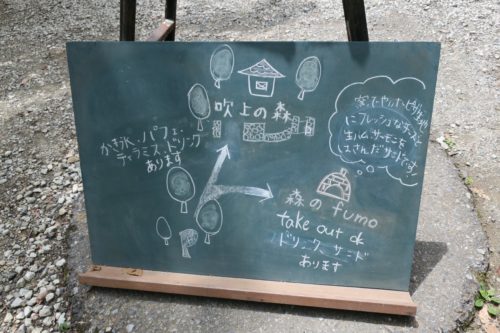 吹上の森
かき氷、パフェ、
ティラミス、ドリンク
あります
窯でやいたピザ生地
にフレッシュなチーズと
生ハム、サーモンを
はさんだサンドです!
森の fumo
take out ok
ドリンク、サンド
あります